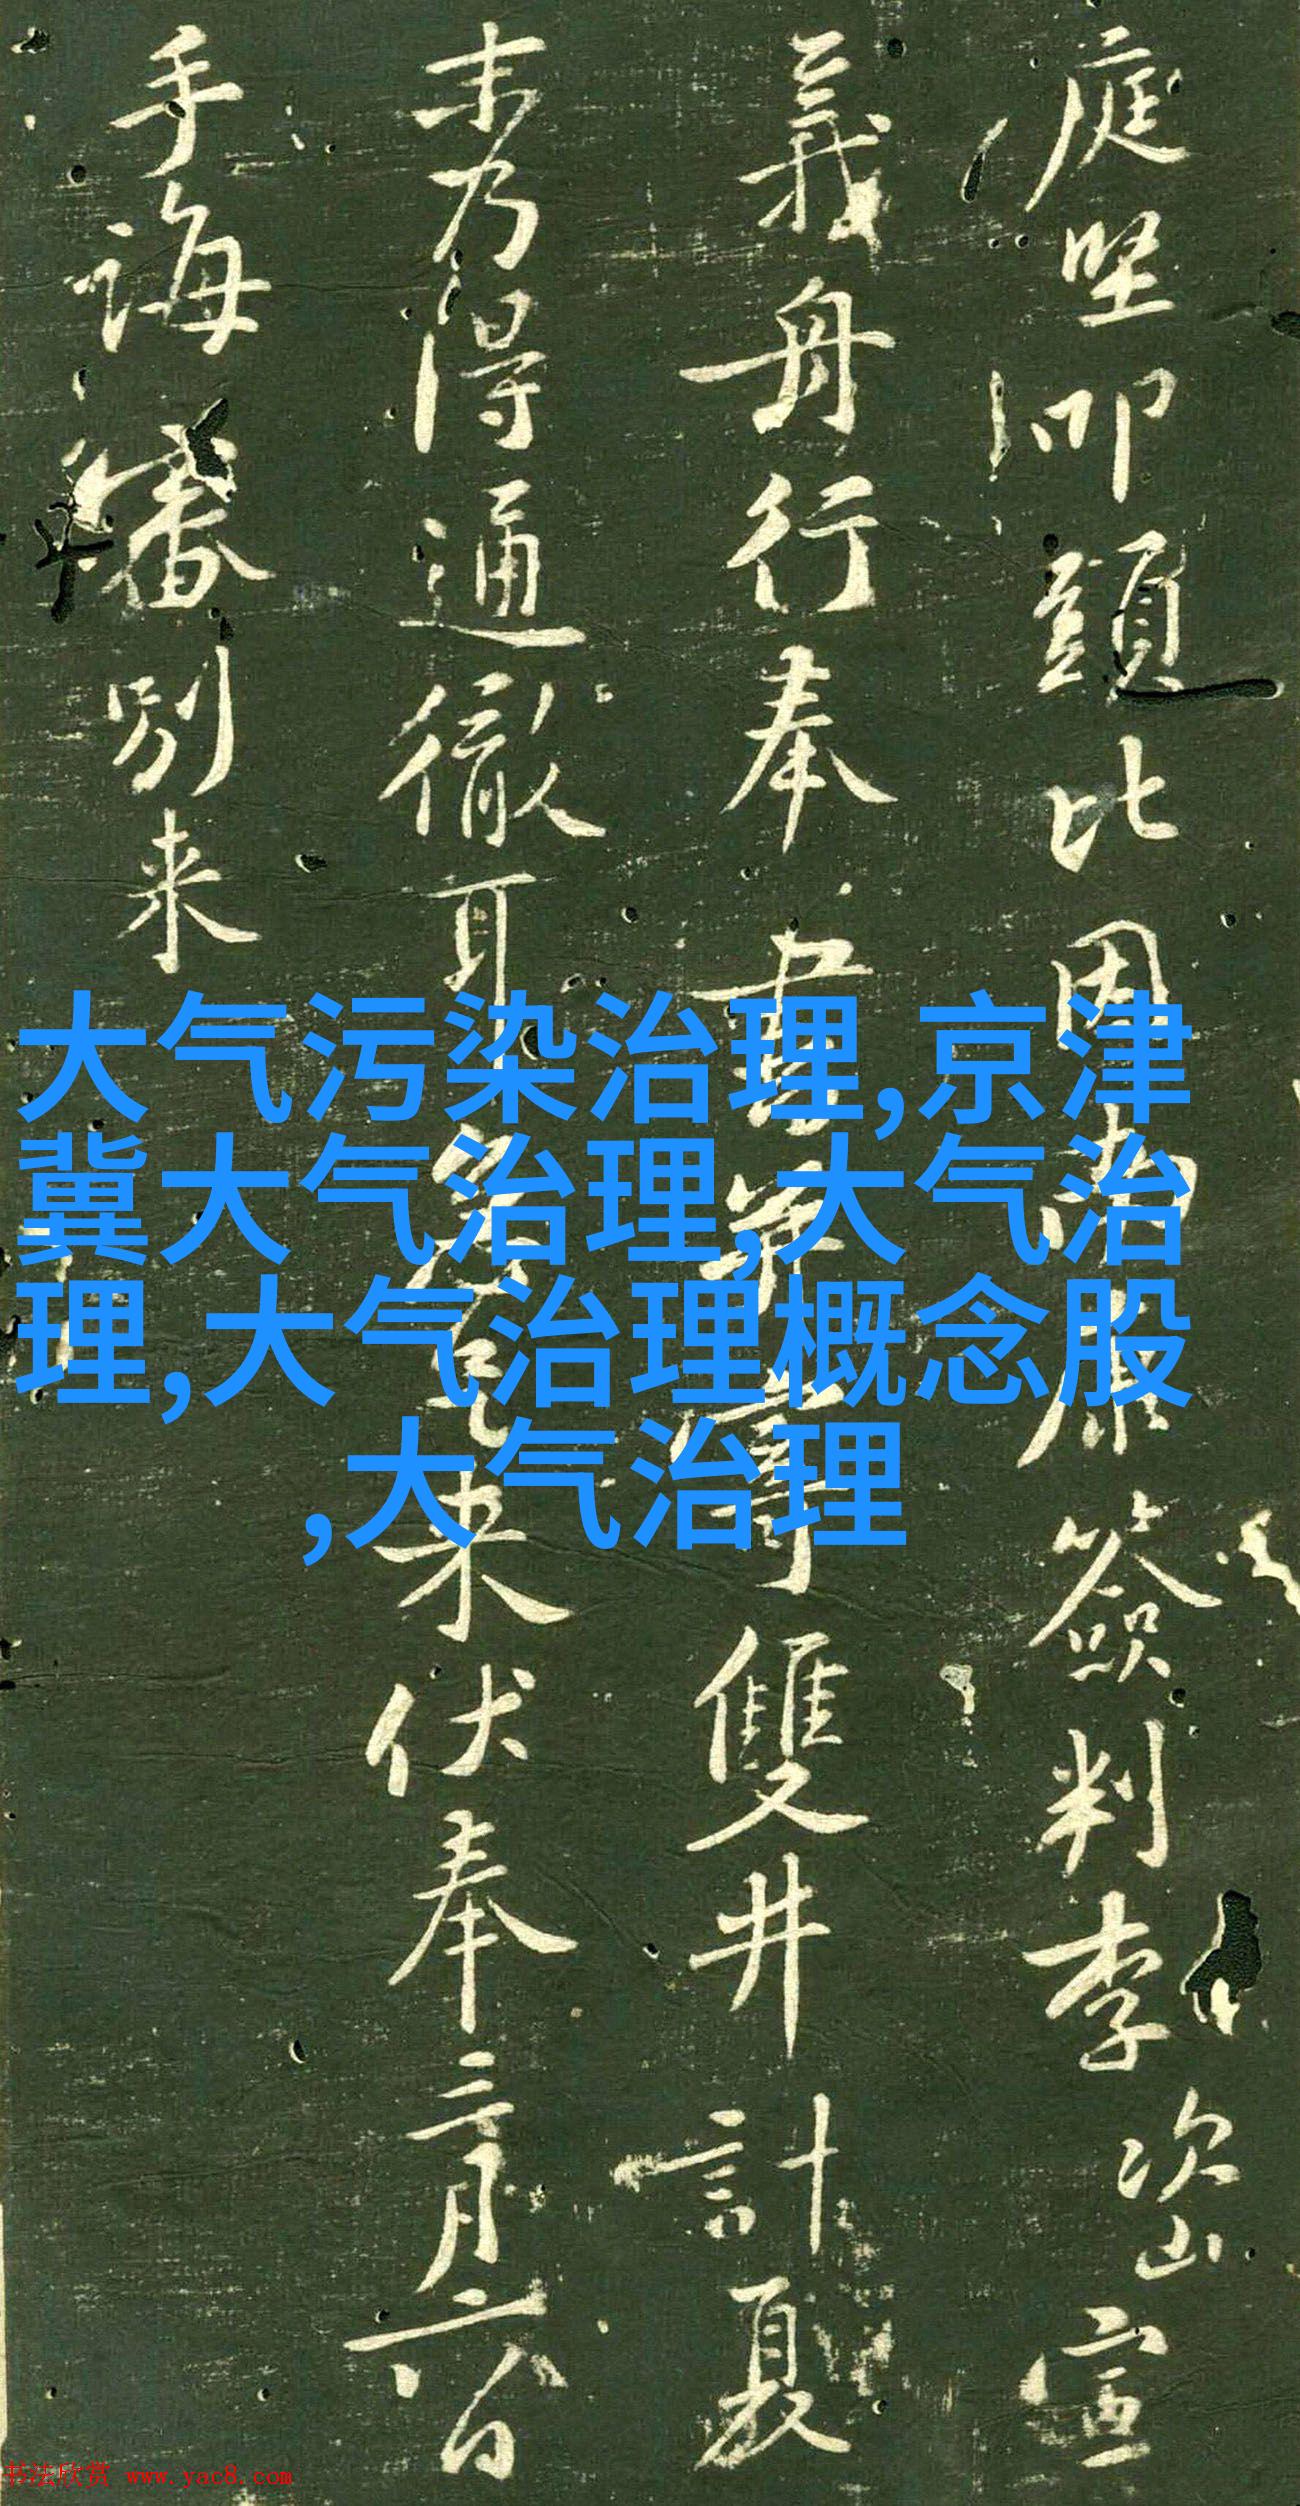 庭堅叩頭比因南康簽判李次山宣
義舟行奉書并寄雙井計夏
末乃得通徹耳急足来伏奉三月六日
手誨審別来
大气污染治理,京津
冀大气治理,大气治
理,大气治理概念股
,大气治理
书法欣赏 www.yac8.com